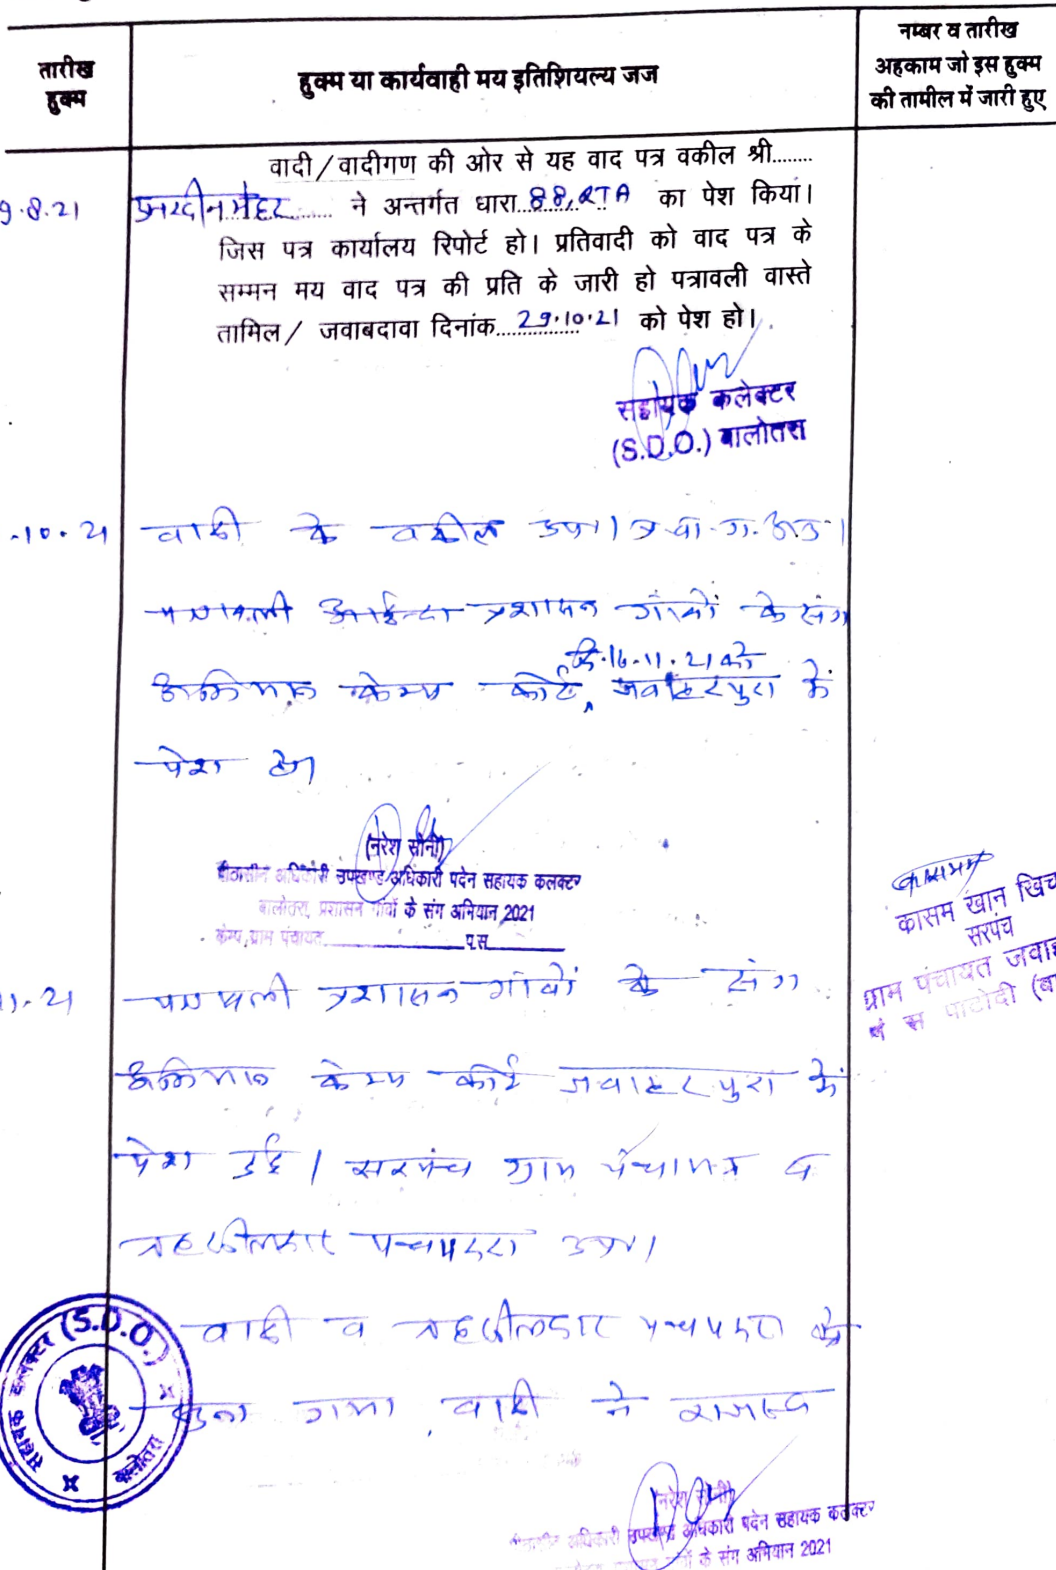 तारीख
हुक्म
हुक्म या कार्यवाही मय इतिशियल्य जज
नम्बर व तारीख
अहकाम जो इस हुक्म
की तामील में जारी हुए
वादी/वादीगण की ओर से यह वाद पत्र वकील श्री........
9.8.21 ने अन्तर्गत धारा 88, RTA का पेश किया।
जिस पत्र कार्यालय रिपोर्ट हो। प्रतिवादी को वाद पत्र के
सम्मन मय वाद पत्र की प्रति के जारी हो पत्रावली वास्ते
तामिल/ जवाबदावा दिनांक 29.10.21 को पेश हो।
सहायक कलेक्टर
(S.D.O.) बालोतरा
.10.21 वादी के वकील उप।
पत्रावली आईन्दा प्रशासन गांवों के संग
दि.16.11.21 को
अभियान केम्प कोर्ट, जवाहरपुरा में
पेश हो।
(नरेश सोनी)
पीठासीन अधिकारी उपखण्ड अधिकारी पदेन सहायक कलक्टर
बालोतरा, प्रशासन गांवों के संग अभियान 2021
केम्प ग्राम पंचायत प.स.
कासम
कासम खान खिच
सरपंच
ग्राम पंचायत जवाह
पं स पाटोदी (बा
11.21 पत्रावली प्रशासन गांवों के संग
अभियान केम्प कोर्ट जवाहरपुरा में
पेश हुई। सरपंच ग्राम पंचायत व
तहसीलदार पचपदरा उप।
वादी व तहसीलदार पचपदरा को
सुना गया, वादी ने राजस्व
सहायक कलक्टर (S.D.O.)
बालोतरा
(नरेश सोनी)
पीठासीन अधिकारी उपखण्ड अधिकारी पदेन सहायक कलक्टर
गांवों के संग अभियान 2021